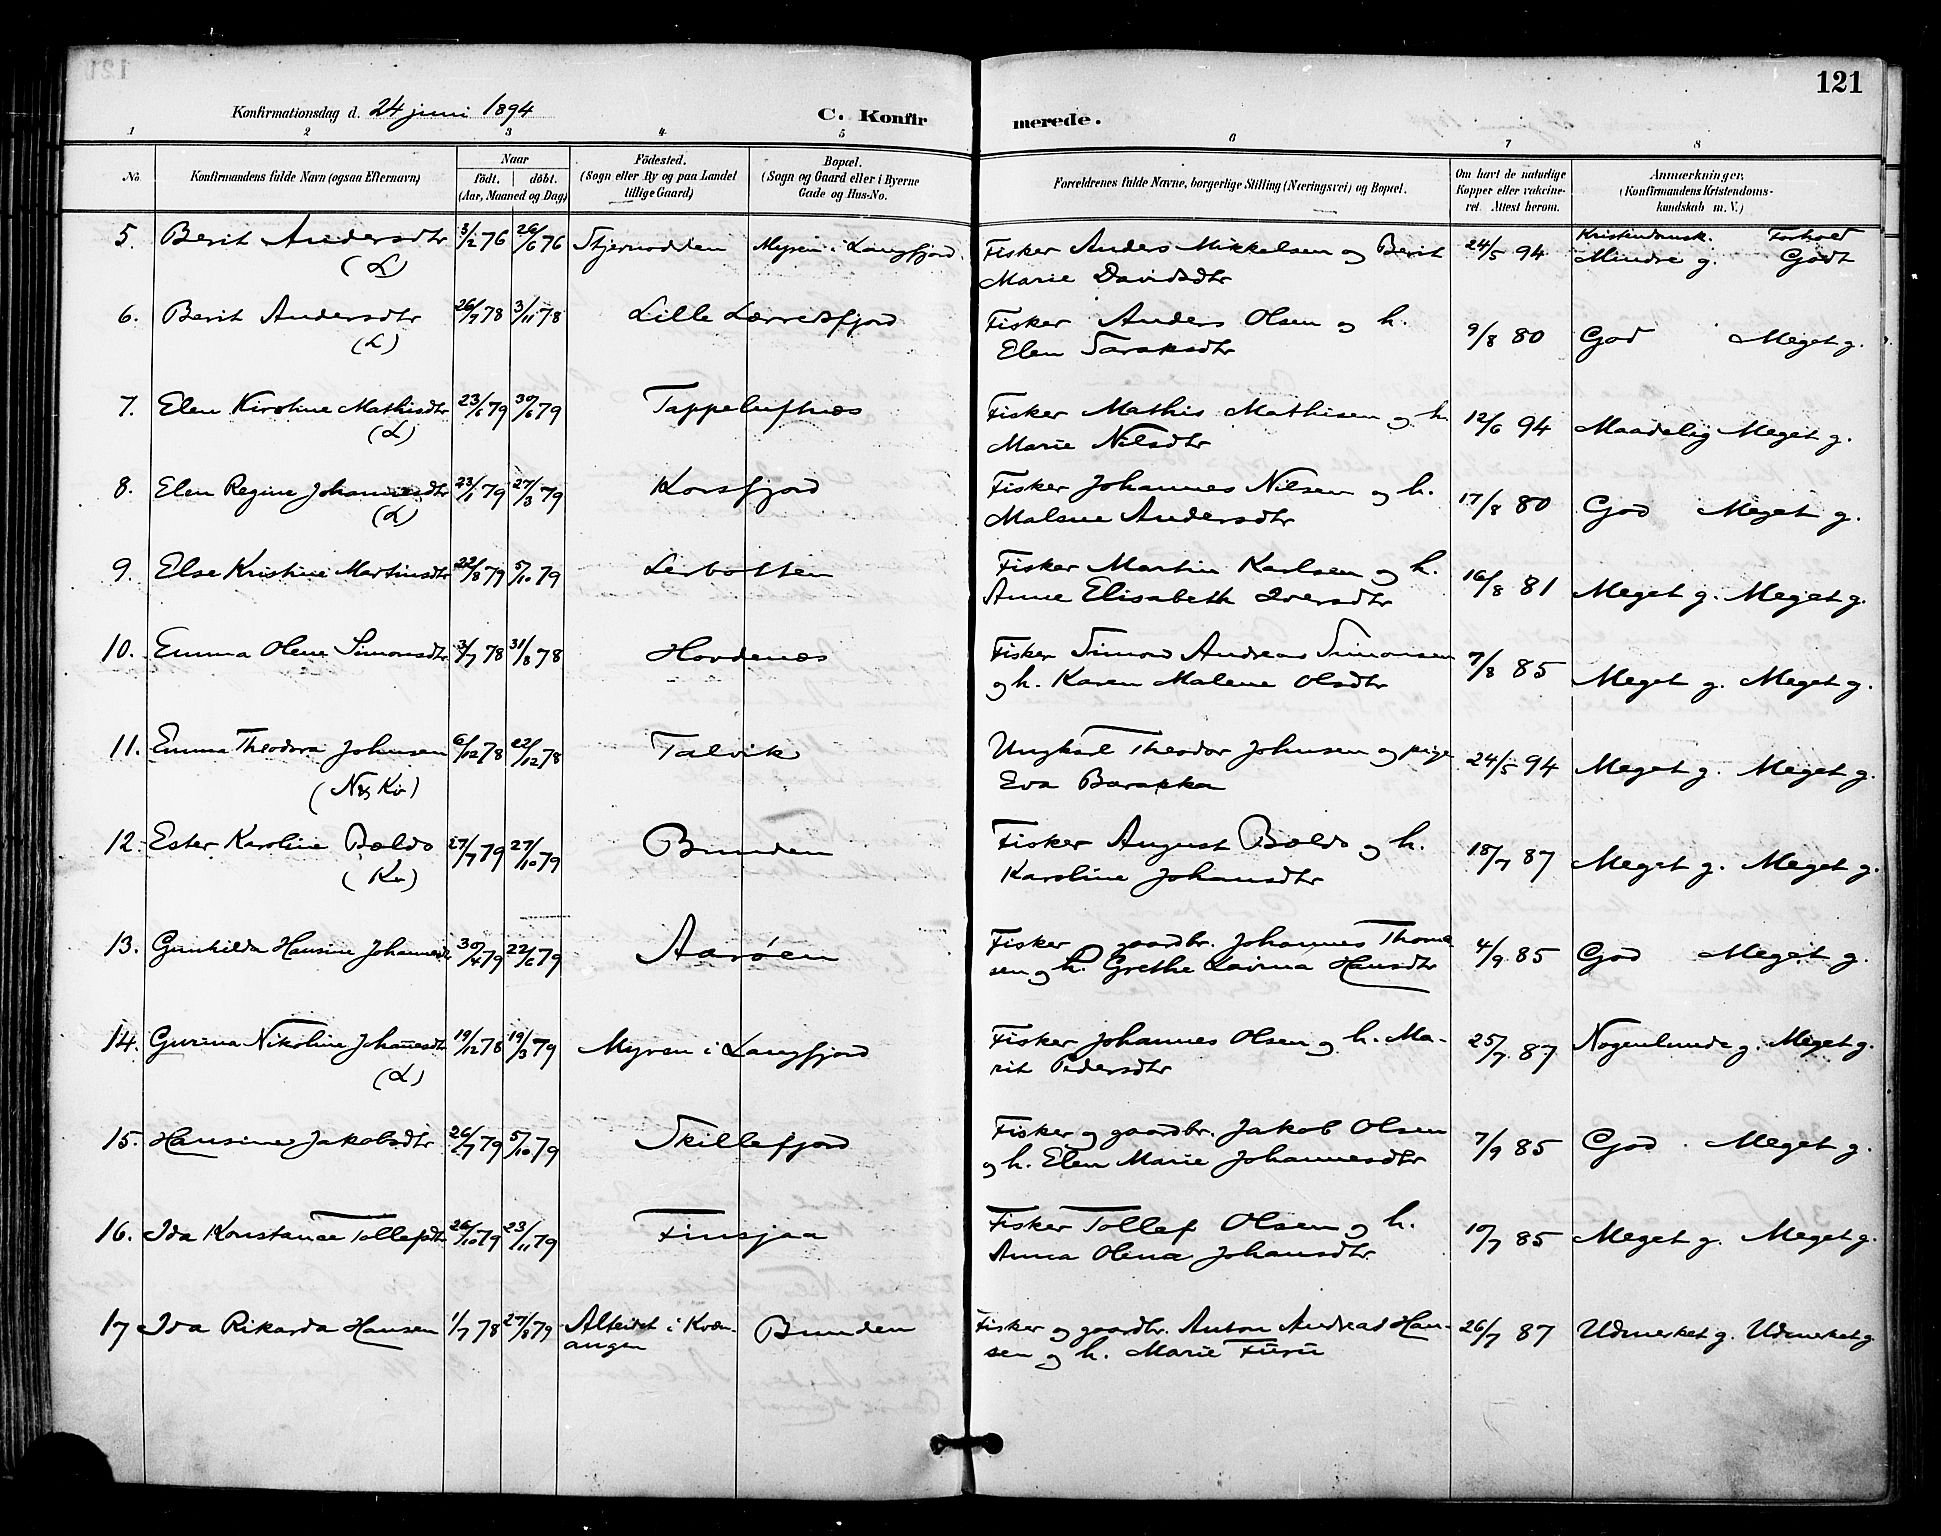 121
Konfirmationsdag d. 24 juni 1894
C. Konfirmerede.
1 2 3 4 5 6 7 8
No.
Konfirmandens fulde Navn (ogsaa Efternavn)
Naar
födt. | döbt.
(Aar, Maaned og Dag)
Födested.
(Sogn eller By og paa Landet
tillige Gaard)
Bopæl.
(Sogn og Gaard eller i Byerne
Gade og Hus-No.
Forældrenes fulde Navne, borgerlige Stilling (Næringsvei) og Bopæl.
Om havt de naturlige
Kopper eller vakcine-
ret. Attest herom.
Anmærkninger.
(Konfirmandens Kristendoms-
kundskab m. V.)
Kristendomsk. Forhold
5. Berit Andersdtr 3/2 76 26/6 76 Stjernodden Myren i Langfjord Fisker Anders Mikkelsen og Berit 24/5 94 Mindre g. Godt
(L) Marie Davidsdtr
6. Berit Andersdtr 26/9 78 3/11 78 Lille Lerredsfjord Fisker Anders Olsen og h. 9/8 80 God Meget g.
(L) Elen Saraksdtr
7. Elen Kirstine Mathisdtr 23/6 79 30/6 79 Tappeluftnæs Fisker Mathis Mathisen og h. 12/6 94 Maadelig Meget g.
(L) Marie Nilsdtr
8. Elen Regine Johannesdtr 23/1 79 27/3 79 Korsfjord Fisker Johannes Nilsen og h. 17/8 80 God Meget g.
(L) Malene Andersdtr
9. Else Kristine Martinsdtr 22/8 79 5/10 79 Lerbotten Fisker Martin Karlsen og h. 16/8 81 Meget g. Meget g.
Anne Elisabeth Iversdtr
10. Emma Olene Simonsdtr 3/7 78 31/8 78 Hovdenæs Fisker Simon Andreas Simonsen 7/8 85 Meget g. Meget g.
og h. Karen Malene Olsdtr
11. Emma Theodora Johnsen 6/12 78 22/12 78 Talvik Ungkarl Theodor Johnsen og pige 24/5 94 Meget g. Meget g.
(N & Kv) Eva Barakka
12. Ester Karoline Bældo 27/7 79 27/10 79 Bunden Fisker August Bældo og h. 18/7 87 Meget g. Meget g.
(Kv) Karoline Johansdtr
13. Gunhilda Hansine Johannesdtr 30/4 79 22/6 79 Aarøen Fisker og gaardbr. Johannes Thome 4/9 85 God Meget g.
sen og h. Grethe Lavina Hansdtr
14. Gurina Nikoline Johanesdtr 19/12 78 19/3 79 Myren i Langfjord Fisker Johannes Olsen og h. Ma- 25/7 87 Nogenlunde g. Meget g.
(L) rit Pedersdtr
15. Hansine Jakobsdtr 26/7 79 5/10 79 Skillefjord Fisker og gaardbr. Jakob Olsen 7/9 85 God. Meget g.
og h. Elen Marie Johannesdtr
16. Ida Konstanse Tollefsdtr 26/10 79 23/11 79 Finsjaa Fisker Tollef Olsen og h. 10/7 85 Meget g. Meget g.
Anna Olena Johansdtr
17 Ida Rikarda Hansen 1/7 78 27/8 79 Alteidet i Kvæn- Bunden Fisker og gaardbr. Anton Andreas Han- 26/7 87 Udmerket g. Udmerket g.
angen sen og h. Marie Furu